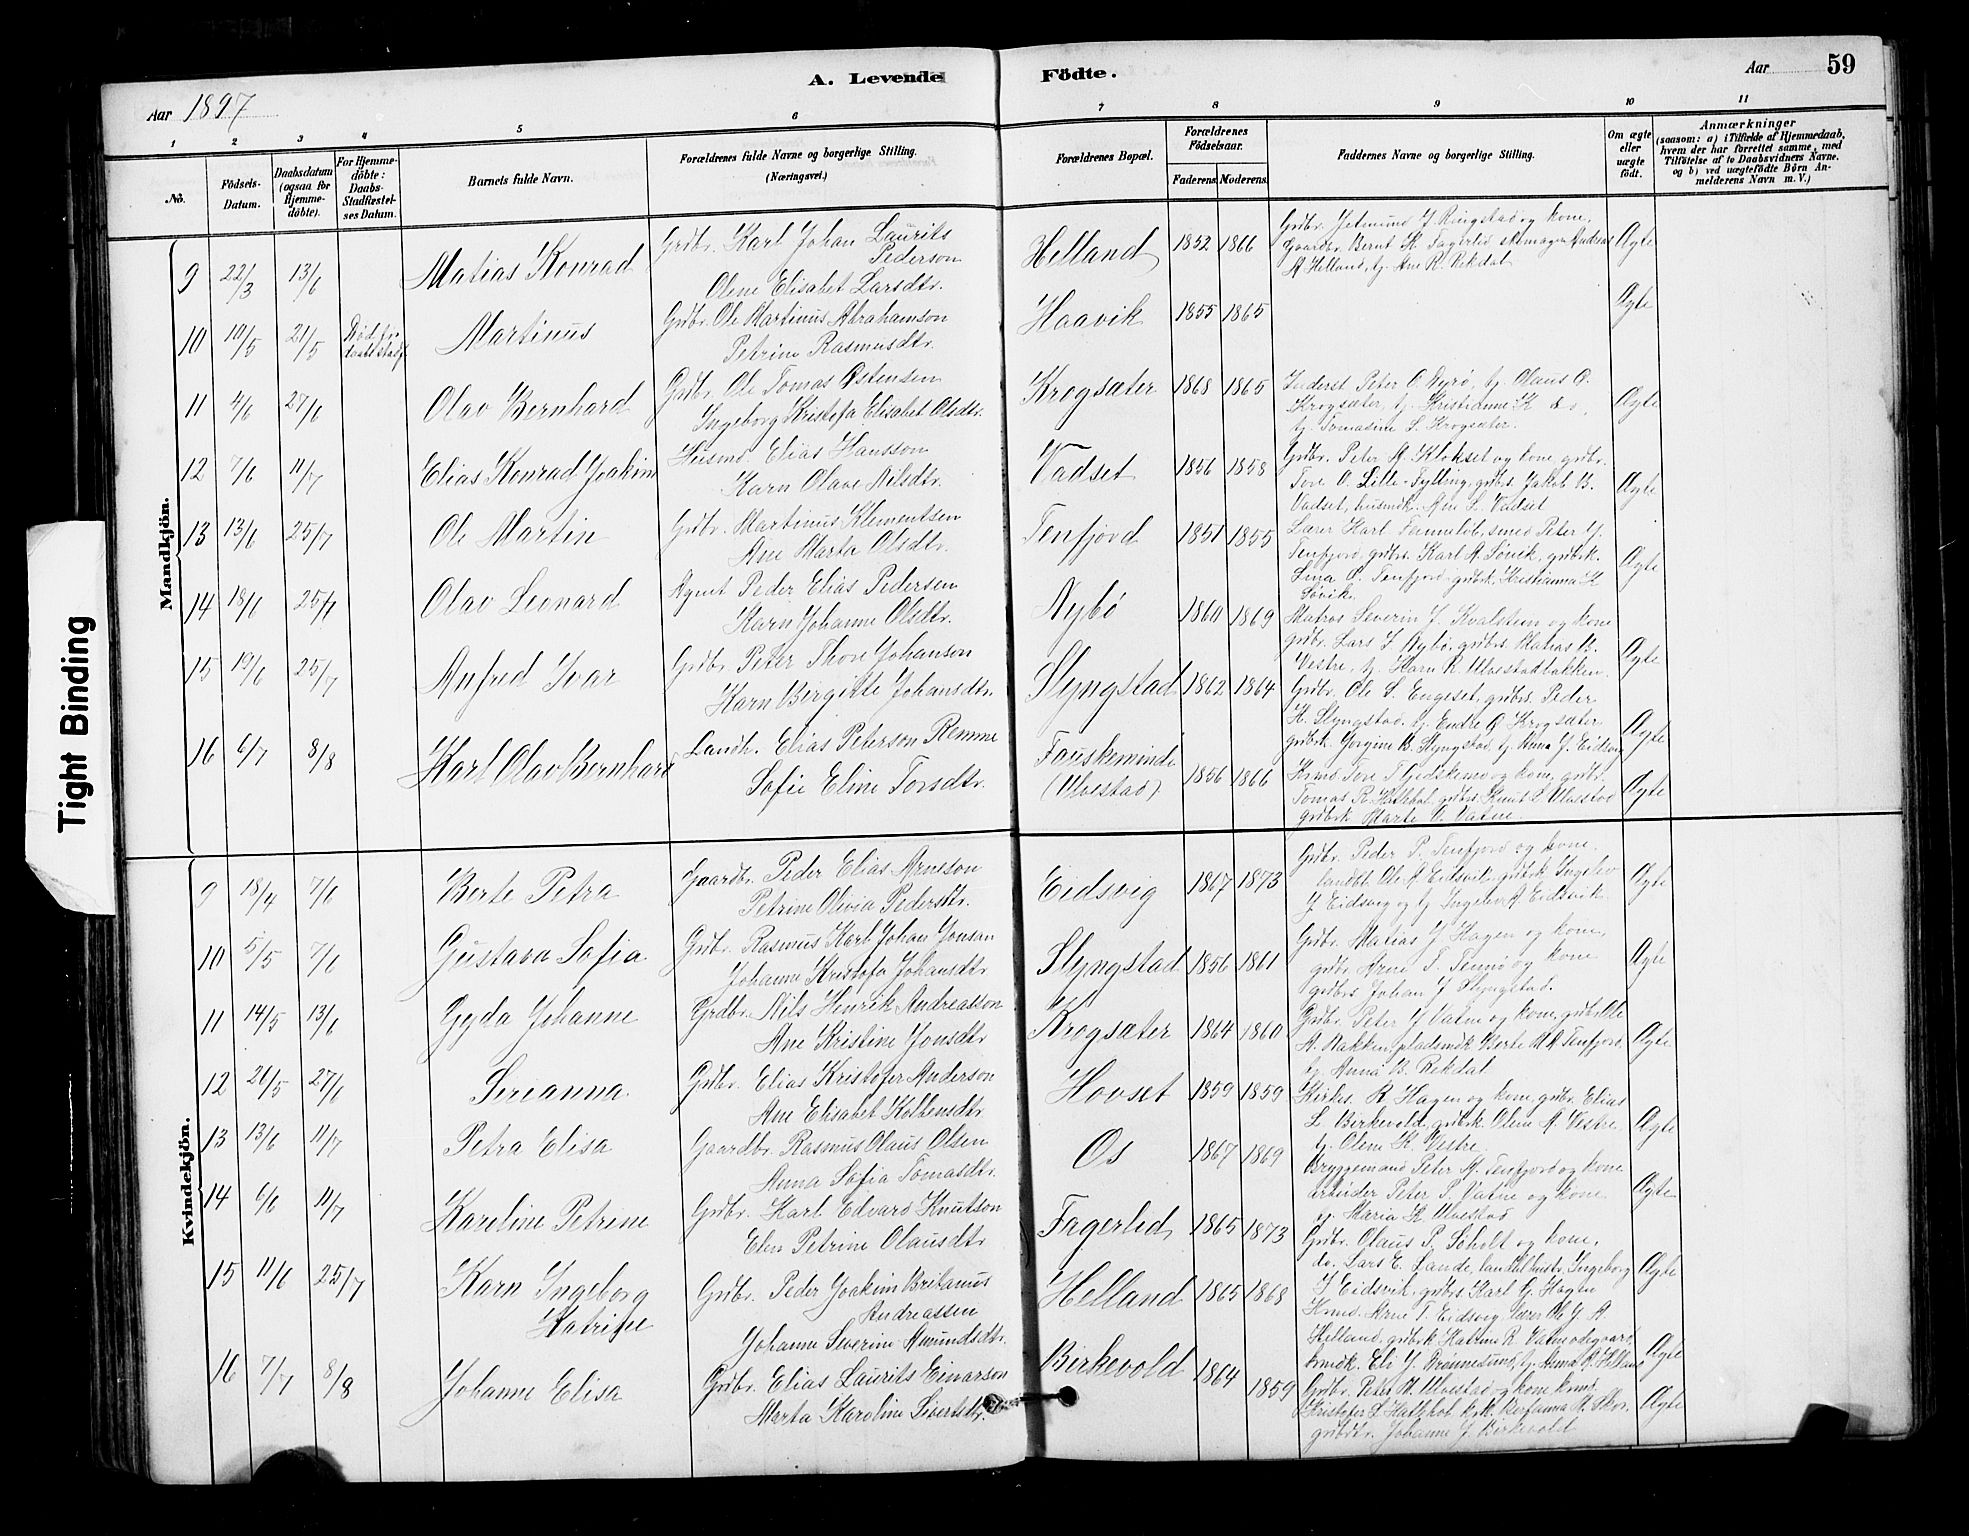 A. Levende Födte.
Aar 59
Aar 1897
1 2 3 4 5 6 7 8 9 10 11
No.
Födsels-Datum.
Daabsdatum (ogsaa for Hjemme-döbte).
For Hjemme-döbte: Daabs-Stadfæstel-ses Datum.
Barnets fulde Navn.
Forældrenes fulde Navne og borgerlige Stilling.
(Næringsvei.)
Forældrenes Bopæl.
Forældrenes Födselsaar.
Faderens. Moderens.
Faddernes Navne og borgerlige Stilling.
Om ægte eller uægte födt.
Anmærkninger
(saasom: a) i Tilfælde af Hjemmedaab, hvem der har forrettet samme, med Tilföielse af to Daabsvidners Navne, og b) ved uægtefödte Börn An-melderens Navn m. V.)
Tight Binding
Mandkjön.
9 22/3 13/6 Matias Konrad
Grdbr. Karl Johan Laurits
Pederson
Olene Elisabet Larsdtr.
Helland 1852 1866
Grdbr. Jetmund J Ringstad og kone,
Gaardbr. Bernt K. Fagerlid skomager Andreas
A Helland, tj. Ane R. Rekdal
Ægte
10 10/5 21/5 Död för daabsstadf. Martinus
Grdbr. Ole Martinus Abrahamson
Petrine Rasmusdtr.
Haavik 1855 1865 Ægte
11 4/6 27/6 Olav Bernhard
Grdbr. Ole Tomas Østensen
Ingeborg Kristofa Elisabet Olsdtr.
Krogsæter 1868 1865
Inderst Peter O. Dyrø, tj. Olaus O.
Krogsæter, tj. Kristianne K do,
tj. Tomasine L. Krogsæter.
Ægte
12 7/6 11/7 Elias Konrad Joakim
Husmd. Elias Hansson
Karn Olave Nilsdtr.
Vadset 1856 1858
Grdbr. Peter A Klokset og kone, grdbr.
Tore O. Lille-Fylling, grdbrs. Jakob B.
Vadset, husmdk. Ane L. Vadset
Ægte
13 13/6 25/7 Ole Martin
Grdbr. Martinus Klementsen
Ane Marta Olsdtr.
Tenfjord 1851 1855
Lærer Karl Tennebö, smed Peter J.
Tenfjord, grdbrs. Karl A. Søvik, grdbrk.
Lina O. Tenfjord, grdbrk. Kristianna K
Søvik.
Ægte
14 18/6 25/7 Olav Leonard
Agent Peder Elias Pedersen
Karn Johanne Olsdtr.
Nybö 1860 1869
Matros Severin J. Kvalsteen og kone
grdbr. Lars I. Nybö, grdbrs Matias B.
Vestre, tj. Karn R. Ulvestadbakken.
Ægte
15 19/6 25/7 Anfred Ivar
Grdbr. Peter Thore Johanson
Karn Bergitte Johansdtr.
Slyngstad 1862 1864
Grdbr. Ole S. Engeset, grdbrs. Peder
K. Slyngstad, tj. Endre O Krogsæter
grdbrk. Jorgine B. Slyngstad, tj. Anna J. Eidsvig
Ægte
16 6/7 8/8 Karl Olav Bernhard
Landh. Elias Peterson Remme
Sofie Eline Torsdtr.
Fauskeminde
(Ulvestad)
1856 1866
Krmd. Tore T Gjidskemo og kone, grdbr.
Tomas R. Hatlehol, grdbrs. Knut L Ulvestad
grdbrk Marte V. Vatne.
Ægte
Kvindekjön.
9 18/4 7/6 Berte Petra
Gaardbr. Peder Elias Arneson
Petrine Olivia Pedersdtr.
Eidsvig 1867 1873
Grdbr. Peder P. Tenfjord og kone
landh. Ole A Eidsvik, grdbrk. Ingelev
J. Eidsvig og tj. Ingelev A Eidsvik
Ægte
10 5/5 7/6 Gustava Sofia
Grdbr. Rasmus Karl Johan Jonsan
Johanne Kristofa Johansdtr.
Slyngstad 1856 1861
Grdbr. Matias J Hagen og kone,
grdbr. Arne T. Tennø og kone
grdbrs Johan J Slyngstad.
Ægte
11 14/5 13/6 Gyda Johanne
Grdbr. Nils Henrik Andreasson
Ane Kristine Jonsdtr
Krogsæter 1864 1860
Grdbr. Peter J Vatne og kone, grdbr. Ole
A. Bakken, pladsmdk Berte M A Tenfjord,
tj. Anna B. Rekdal
Ægte
12 21/5 27/6 Serianna
Grdbr. Elias Kristofer Anderson
Ane Elisabet Koltensdtr
Hovset 1859 1859
Kirkes. R Hagen og kone, grdbr. Elias
L Birkevold, grdbrk. Oline A. Vestre
tj. Oline K. Vestre
Ægte
13 13/6 11/7 Petra Elisa
Gaardbr. Rasmus Olaus Olsen
Anna Sofia Tomasdtr.
Os 1867 1869
Bryggemand Peter M. Tenfjord og kone
arbeider Peter P. Vatne og kone
tj. Maria K. Ulvestad
Ægte.
14 6/6 11/7 Karoline Petrine
Grdbr. Karl Edvard Knutson
Elen Petrine Olausdtr
Fagerlid 1865 1873
Grdbr. Olaus P. Soholt og kone,
do. Lars E. Lande, landhandlhustr. Ingeborg
J Eidsvik, grdbrs Karl G. Hagen
Ægte
15 11/6 25/7 Karn Ingeborg
Katrine
Grdbr. Peder Joakim Britanus
Andreassen
Johanne Severine Amundsdtr.
Helland 1865 1868
Krmd. Arne T. Eidsvig, lærer M. J. A.
Helland, grdbrk Katrine R Vatneødegaard,
krmdk. Eli J. Brønnesund, tj. Anna R. Helland
Ægte
16 7/7 8/8 Johanne Elisa
Grdbr. Elias Laurits Einarson
Marta Karoline Sivertsdtr.
Birkevold 1864 1859
Grdbr. Peter M. Ulvestad og kone, krmd.
Kristofer L. Hatlehol, krmk. Serianna M. Skor.
grdbrdtr. Johanne J. Birkevold
Ægte